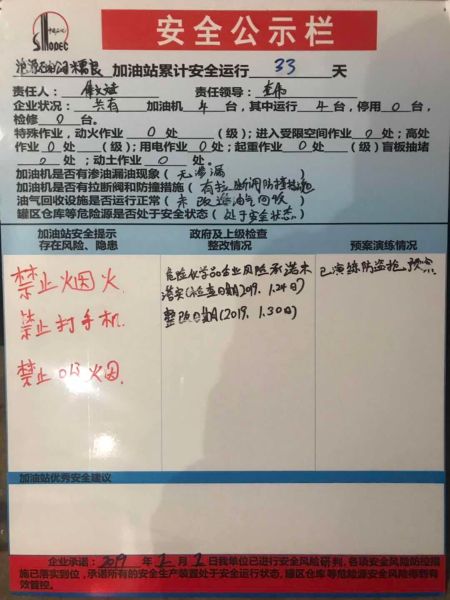 中国石化
Sinopec
安全公示栏
加油站累计安全运行 33 天
责任人： 责任领导：
企业状况：共有 加油机 4 台，其中运行 4 台，停用 0 台，
检修 0 台。
特殊作业，动火作业 0 处 （级）；进入受限空间作业 0 处；高处
作业 0 处 （级）；用电作业 0 处；起重作业 0 处（级）盲板抽堵
0 处；动土作业 0 处。
加油机是否有渗油漏油现象（无渗漏）
加油机是否有拉断阀和防撞措施（有拉断阀防撞措施
油气回收设施是否运行正常（未改造油气回收
罐区仓库等危险源是否处于安全状态（处于安全状态）
加油站安全提示
存在风险、隐患
政府及上级检查
整改情况
预案演练情况
禁止烟火
禁止打手机
禁止吸烟.
危险化学品企业风险承诺未
落实（检查日期2019. 1.24日）
整改日期（2019. 1.30日）
已演练防盗抢预案
加油站优秀安全建议
企业承诺：2019 年 2 月 2 日我单位已进行安全风险研判，各项安全风险防控措
施已落实到位，承诺所有的安全生产装置处于安全运行状态，罐区仓库等危险源安全风险得到有
效管控。